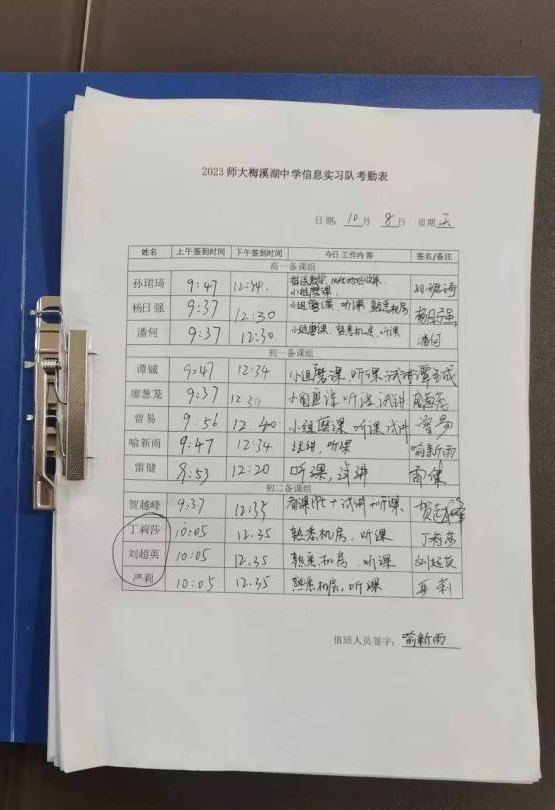 2023 师大梅溪湖中学信息实习队考勤表
日期: 10 月 8 日 星期 天
姓名 上午签到时间 下午签到时间 今日工作内容 签名/备注
高一备课组
孙珺琦 9:47 12:34. 小组磨课 孙珺琦
杨日强 9:37 12:30 小组磨课 听课 熟悉机房 杨日强
潘何 9:37 12:30 小组磨课、熟悉机房、听课 潘何
初一备课组
谭铖 9:47 12:34 小组磨课、听课、试讲
廖葱茏 9:37 12:30 听课 试讲 廖葱茏
曾易 9:56 12:40 小组磨课 听课 试讲 曾易
喻新雨 9:47 12:34 试讲, 听课 喻新雨
雷健 8:53 12:20 听课, 试讲 雷健
初二备课组
贺越峰 9:37 12:35 +试讲+听课 贺越峰
丁莉莎 10:05 12.35 熟悉机房、听课 丁莉莎
刘超英 10:05 12.35 熟悉机房、听课 刘超英
严莉 10:05 12.35 熟悉机房, 听课 严莉
值班人员签字: 喻新雨